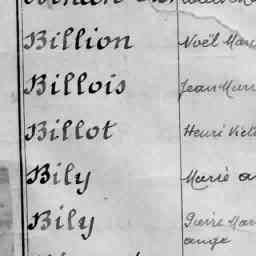 Billion Noël Mar
Billois Jean Mar
Billot Henri Vict
Bily Marie a
Bily Pierre Mar
ange